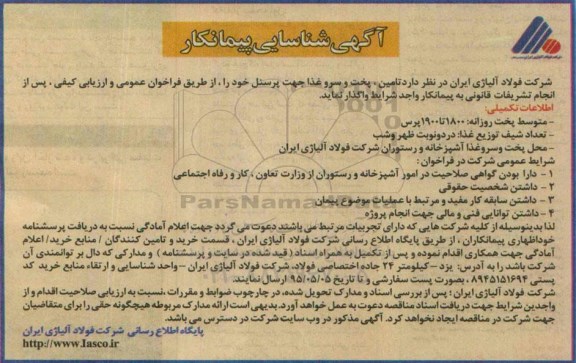 آگهی شناسایی پیمانکار
شرکت فولاد آلیاژی ایران در نظر دارد تامین ، پخت و سرو غذا جهت پرسنل خود را ، از طریق فراخوان عمومی و ارزیابی کیفی ، پس از
انجام تشریفات قانونی به پیمانکار واجد شرایط واگذار نماید.
اطلاعات تکمیلی:
- متوسط پخت روزانه: ۱۸۰۰ تا ۱۹۰۰ پرس
- تعداد شیفت توزیع غذا: در دو نوبت ظهر و شب
- محل پخت و سرو غذا آشپزخانه و رستوران شرکت فولاد آلیاژی ایران
شرایط عمومی شرکت در فراخوان :
۱ - دارا بودن گواهی صلاحیت در امور آشپزخانه و رستوران از وزارت تعاون ، کار و رفاه اجتماعی
۲ - داشتن شخصیت حقوقی
۳ - داشتن سابقه کار مفید و مرتبط با عملیات موضوع پیمان
۴ - داشتن توانایی فنی و مالی جهت انجام پروژه
لذا بدینوسیله از کلیه شرکت هایی که دارای تجربیات مرتبط می باشند دعوت می گردد جهت اعلام آمادگی نسبت به دریافت پرسشنامه
خوداظهاری پیمانکاران ، از طریق پایگاه اطلاع رسانی شرکت فولاد آلیاژی ایران ، قسمت خرید و تامین کنندگان / منابع خرید/ اعلام
آمادگی جهت همکاری اقدام نموده و پس از تکمیل به همراه اسناد ( قید شده در سایت و پرسشنامه ) و مدارکی که دال بر توانمندی آن
شرکت باشد را به آدرس: یزد - کیلومتر ۲۴ جاده اختصاصی فولاد، شرکت فولاد آلیاژی ایران - واحد شناسایی و ارتقاء منابع خرید کد
پستی ۸۹۴۵۱۵۱۶۹۴ ، بصورت پست سفارشی و تا تاریخ ۹۵/۰۵/۰۵ ارسال نمایند.
شرکت فولاد آلیاژی ایران ؛ پس از بررسی اسناد و مدارک تحویل شده، در چارچوب ضوابط و مقررات ،نسبت به ارزیابی صلاحیت اقدام و از
واجدین شرایط جهت دریافت اسناد مناقصه دعوت به عمل خواهد آورد. بدیهی است ارائه مدارک مربوطه هیچگونه حقی را برای متقاضیان
جهت شرکت در مناقصه ایجاد نخواهد کرد. آگهی مذکور در وب سایت شرکت در دسترس می باشد.
پایگاه اطلاع رسانی شرکت فولاد آلیاژی ایران
http://www.Iasco.ir
ParsNamaddata